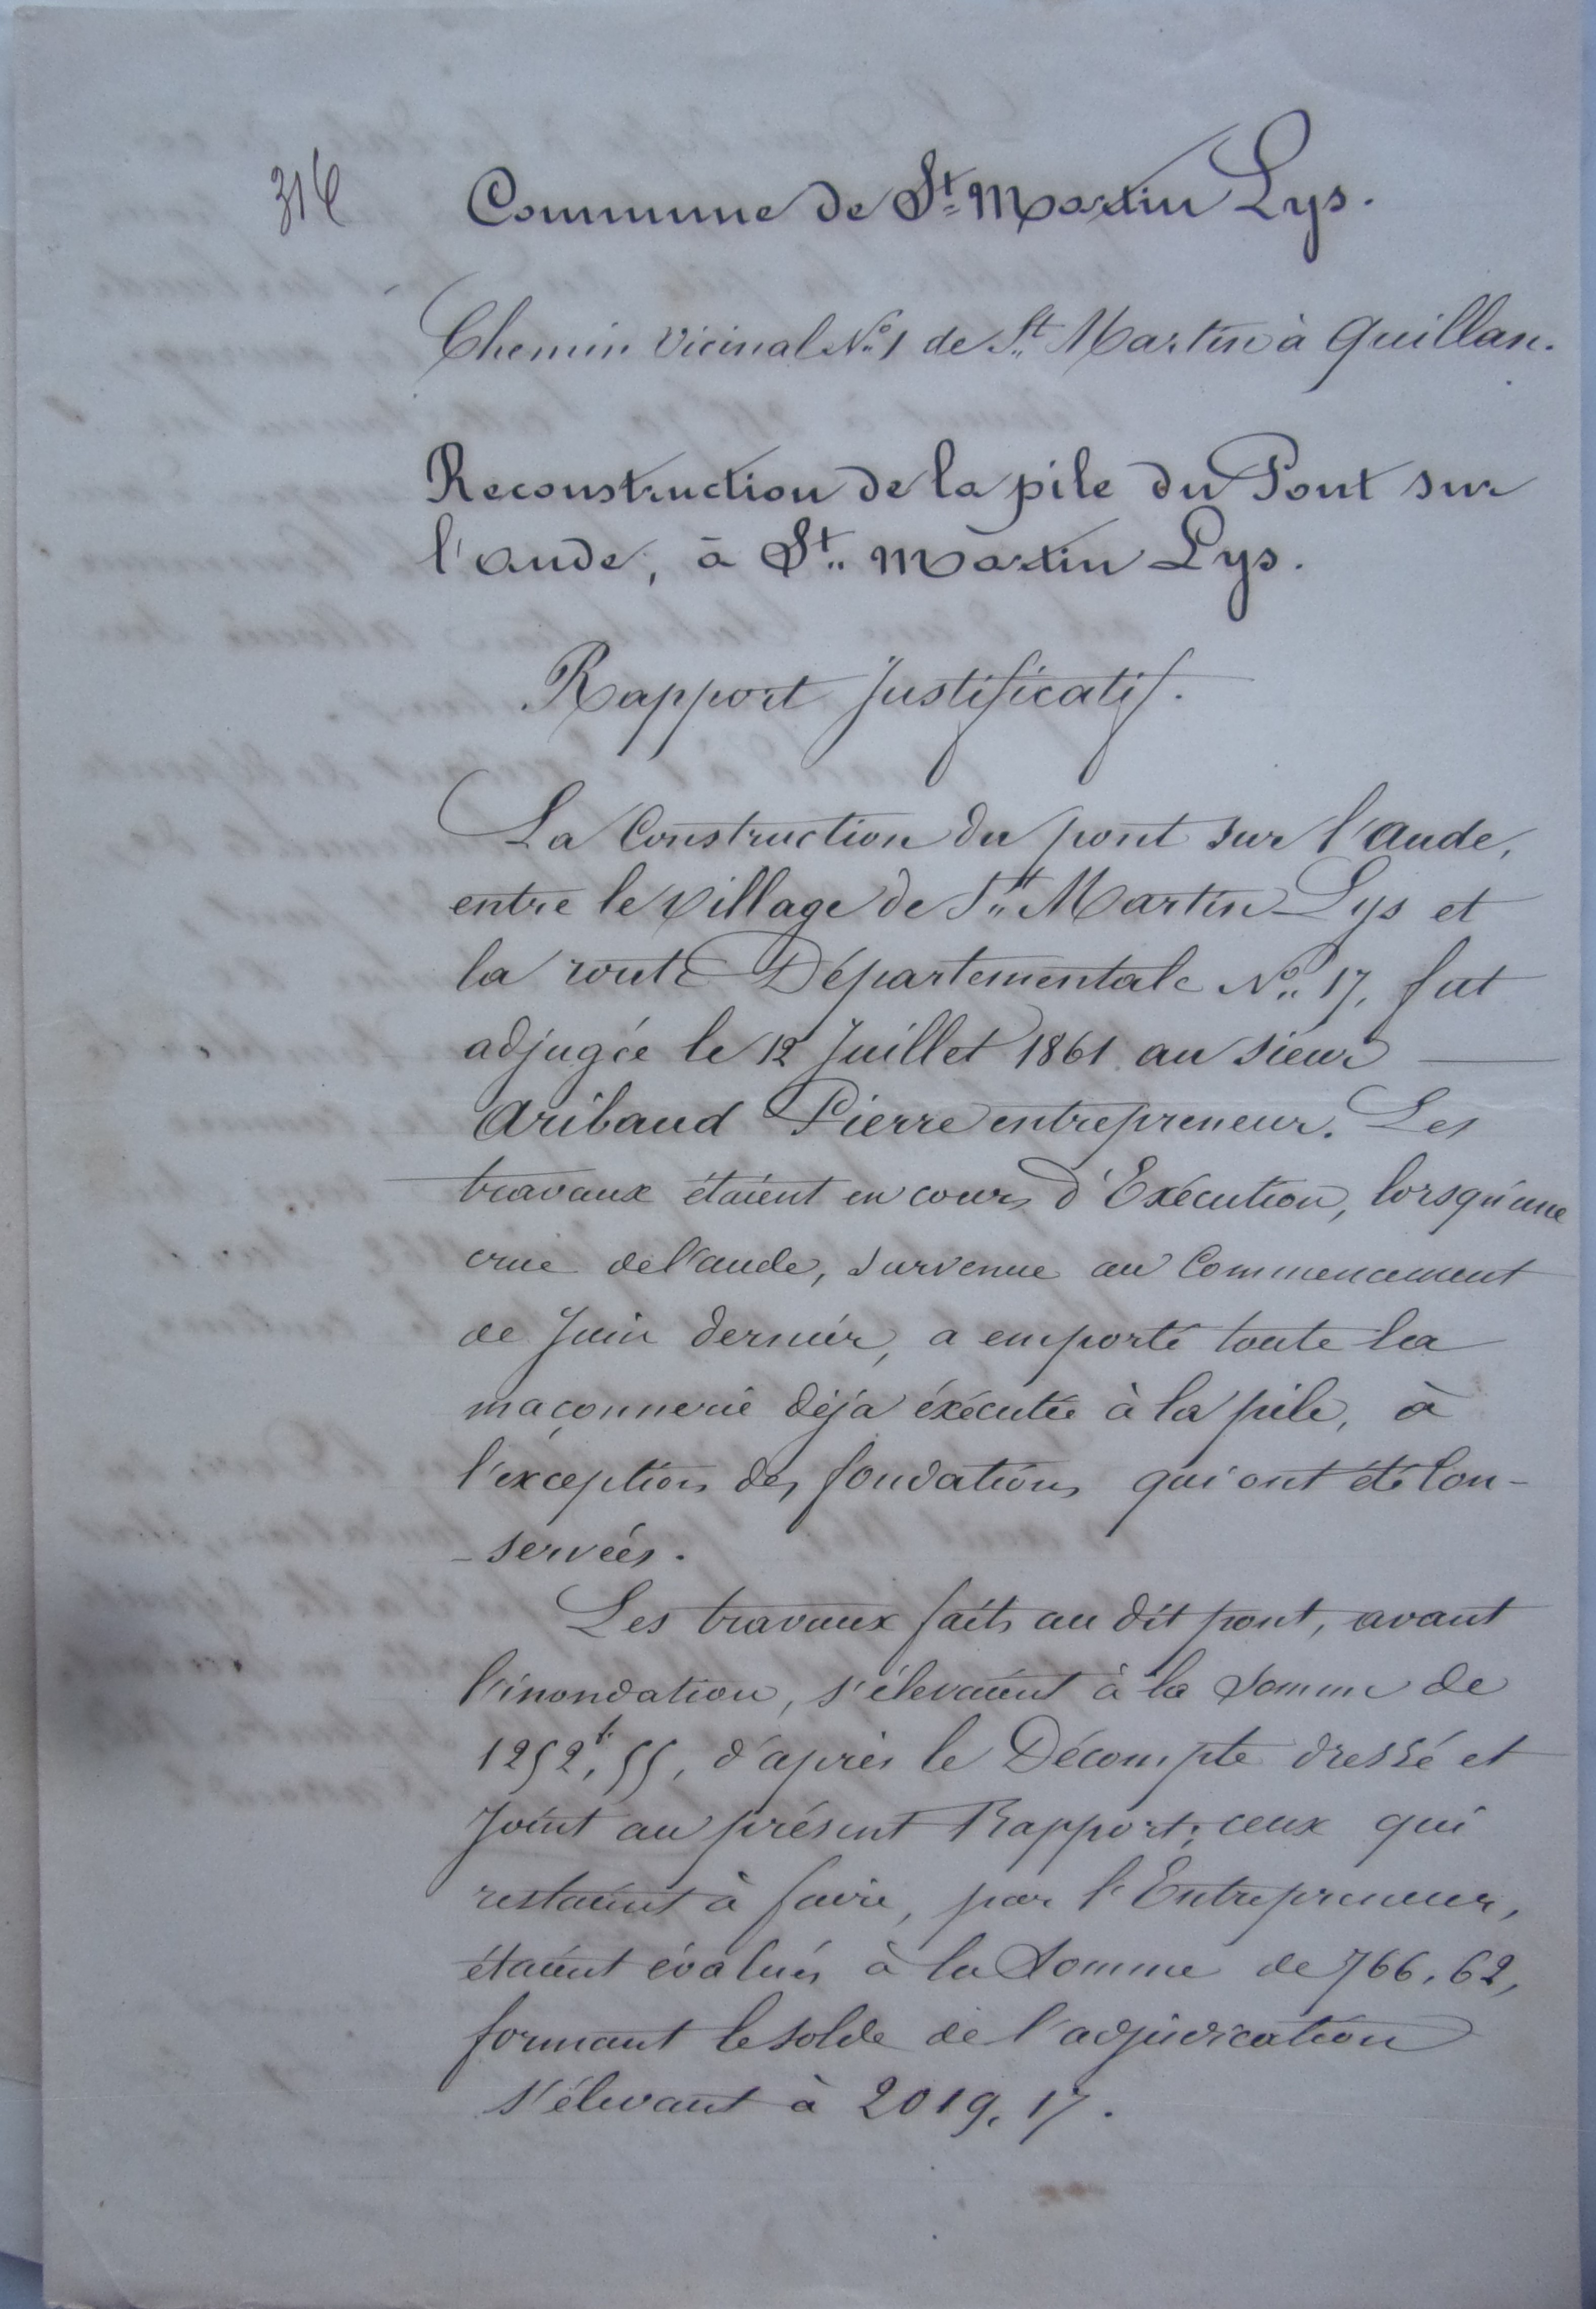 316
Commune de St. Martin Lys.
Chemin vicinal No. 1 de St. Martin à Quillan.
Reconstruction de la pile du Pont sur
l'aude, à St. Martin Lys.
Rapport Justificatif.
La Construction du pont sur l'aude,
entre le village de St. Martin Lys et
la route Départementale No. 17, fut
adjugée le 12 Juillet 1861 au sieur
Aribaud Pierre entrepreneur. Les
travaux étaient en cours d'Exécution, lorsqu'une
crue de l'aude, survenue au Commencement
de Juin dernier, a emporté toute la
maçonnerie déja éxécutée à la pile, à
l'exception des fondations qui ont été Con-
-servées.
Les travaux faits au dit pont, avant
l'inondation, s'élevaient à la somme de
1252f,55, d'après le Décompte dressé et
Joint au présent Rapport; ceux qui
restaient à faire, par l'Entrepreneur,
étaient évalués à la Somme de 766,62,
formant le solde de l'adjudication
s'élevant à 2019,17.